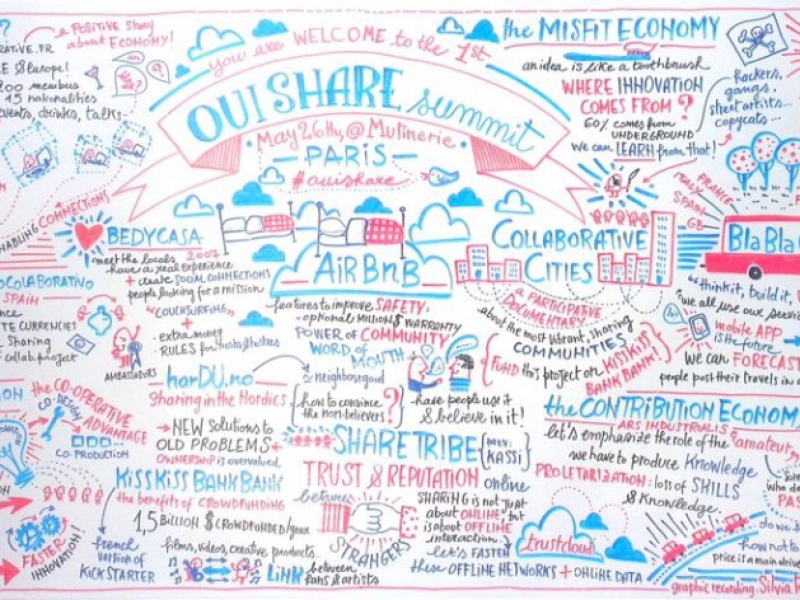 POSITIVE Story
about ECONOMY!
RATIVE.FR
E & Europe!
200 members
15 nationalities
events, drinks, talks
you are WELCOME to the 1st
OUI SHARE summit
May 26th, @ Mutinerie
PARIS
#ouishare
the MISFIT ECONOMY
an idea is like a toothbrush
WHERE INNOVATION
COMES FROM?
60% comes from
UNDERGROUND
we can LEARN from that!
hackers,
gangs,
street artists...
copycats...
ENABLING CONNECTIONS
BEDYCASA
2007
meet the locals
have a real experience
+ create SOCIAL CONNECTIONS
people looking for a mission
"COUCHSURFING"
+
extra money
RULES for hosts & hostees
AMBASSADORS
OCOLABORATIVO
SPAIN
TE CURRENCIES
Sharing
collab.project
AiRBnB
features to improve SAFETY
optional MILLION $ WARRANTY
POWER of COMMUNITY
WORD of
MOUTH
neighborgood
how to convince
the non-believers?
have people use it
& believe in it!
COLLABORATIVE
CITIES
a PARTICIPATIVE
DOCUMENTARY
about the most vibrant, sharing
COMMUNITIES
FUND this project on KISSKISS
BANKBANK!
FRANCE
ITALY
SPAIN
GB
BlaBla
"think it, build it,
we all use our
mobile APP
is the future
we can FORECAST
people post their travels in
the CO-OPERATIVE
ADVANTAGE
CO-DESIGN
CO-PRODUCTION
FASTER
INNOVATION!
harDU.no
sharing in the Nordics
NEW Solutions to
OLD PROBLEMS
OWNERSHIP is overvalued
KissKissBankBank
the benefits of CROWDFUNDING
1,5 BILLION $ CROWDFUNDED/year
french
version of
KICKSTARTER
films, videos, creative products
LiNK between
fans & artists
SHARETRIBE
KASSI
TRUST & REPUTATION online
between
STRANGERS
SHARING is not just
about ONLINE, but
is about OFFLINE
interaction.
let's FASTEN
these OFFLINE NETWORKS + ONLINE DATA
trustcloud
the CONTRIBUTION ECONOM
ARS INDUSTRIALIS
let's emphatize the role of the "amateur"
we have to produce Knowledge
PROLETARIZATION: loss of SKILLS
& Knowledge
who de
PAS
do we
how not to
price is a main
graphic recording: Silvia